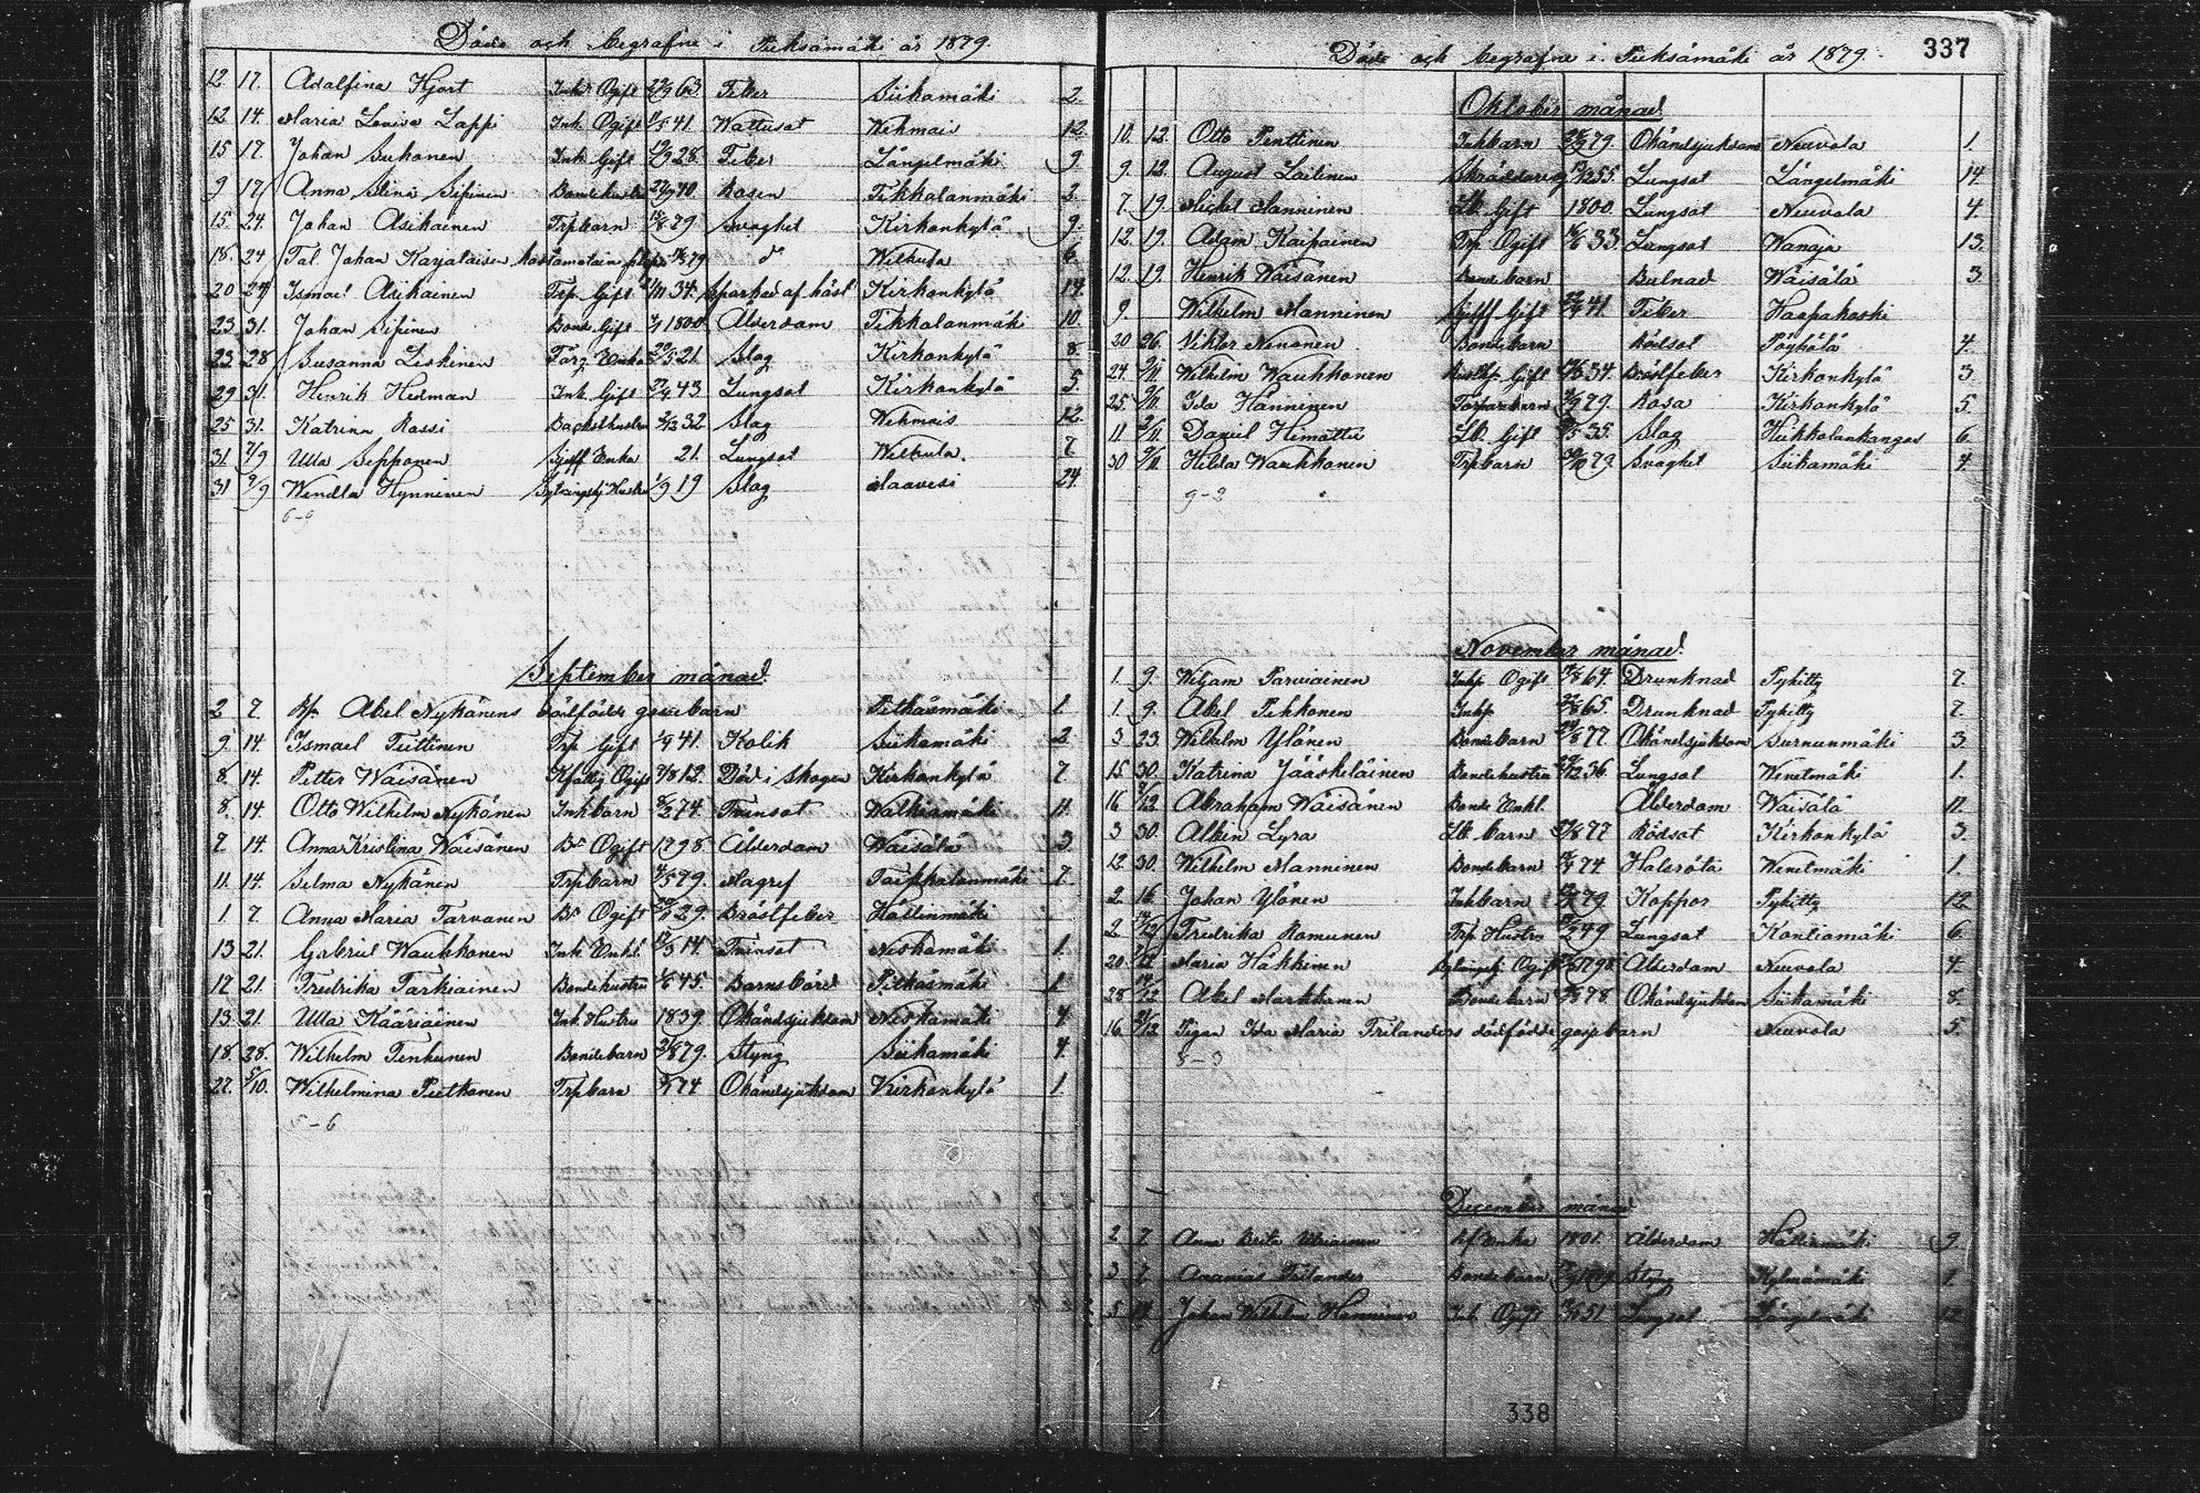 Döde och begrafne i Pieksämäki år 1879.
12. 17. Adalfina Hjort Inh. Ogift 63. Feber Siikamäki 2.
12 14. Maria Lovisa Lappi Inh. Ogift 41. Wattusot Wehmais 12.
15 17. Johan Suhonen Inh. Gift 28. Feber Längelmäki 9.
9 17 Anna Stina Sipinen Rosen Tikkalanmäki
15. 24. Johan Asikainen Trpbarn 79 Svaghet Kirkonkylä 9.
18. 24 Tal. Johan Karjalaisen do Wilhula 6.
20 24 Ismael Asikainen Trp. Gift 34. Sparkad af häst Kirkonkylä 19.
23 31. Johan Sipinen Bonde Gift 1800 Ålderdom Tikkalanmäki 10.
23. 28 Susanna Leskinen Enka 21. Slag Kirkonkylä 8.
29 31. Henrik Hedman Inh. Gift 43 Lungsot Kirkonkylä 5.
25 31. Katrina Rossi 2/12 32 Slag Wehmais 12.
31 7/9 Ulla Sepponen Enka 21. Lungsot Wilhula. 7
31 7/9 Wendla Hynninen 1/9 19 Slag Maavesi 24.
6-9
September månad.
2 7. Abel Nykänens dödfödde gossebarn Pitkämäki 1.
9. 14. Ismael Teittinen Trp Gift 41. Kolik Siikamäki 2
8. 14. Petter Wäisänen Ogift 12. Död i skogen Kirkonkylä 7.
8. 14. Otto Wilhelm Nykänen Inhbarn 74. Tvinsot 11.
7 14. Anna Kristina Wäisänen Ogift 1798 Ålderdom Wäisälä 3
11. 14. Selma Nykänen Trpbarn 79. Magref 7
1. 7. Anna Maria Tarvanen Ogift 29. Bröstfeber Hällinmäki
13 21. Gabriel Waukkonen Inh. Enkl. 14. Tvinsot Niskamäki 1.
17 21. Fredrika Tarkiainen Bondehustru 45. Barnsbörd Pitkämäki 1
13. 21. Ulla Kääriäinen Inh. Hustru 1839 Okändsjukdom Niskamäki 4
18. 28. Wilhelm Tenhunen Bondebarn 79. Styng Siikamäki 4.
27. 5/10. Wilhelmina Pietkonen Trpbarn 74 Okändsjukdom Kirkonkylä 1.
5-6
Döde och begrafne i Pieksämäki år 1879. 337
Oktober månad.
10. 12. Otto Penttinen Inhbarn 79. Okändsjukdom Neuvola 1.
9. 12. August Laitinen 55 Lungsot Längelmäki 14.
7. 19. Mickel Manninen Gift 1800. Lungsot Neuvola 4.
12. 19. Adam Kaipainen Trp. Ogift 33. Lungsot Wanaja 13.
12. 19. Henrik Wäisänen Bondebarn Bulnad Wäisälä 3.
9. Wilhelm Manninen Gift 41. Feber Haapakoski
20 26. Viktor Novonen Bondebarn Rödsot Pöyhölä 4.
24. 9/11 Wilhelm Waukkonen Gift 34. Bröstfeber Kirkonkylä 3.
25. 9/11. Ida Hänninen Torparbarn 79. Rosa Kirkonkylä 5.
11. 9/11. Daniel Himottu Gift 35. Slag Heikkolankangas 6.
30 9/11. Hilda Waukkonen Trpbarn 79. Svaghet Siikamäki 4.
9-2
November månad.
1. 9. Wiljam Parviainen Inhp Ogift 64. Drunknad Pyhitty 7.
1. 9. Abel Pekkonen Inhp 65. Drunknad Pyhitty 7.
3 23. Wilhelm Ylönen Bondebarn 77 Okändsjukdom Surnunmäki 3.
15 30. Katrina Jääskeläinen Bondehustru 36. Lungsot Wenetmäki 1.
16 Abraham Wäisänen Bonde Enkl. Ålderdom Wäisälä 11.
3 30. Albin Lyra barn 77 Rödsot Kirkonkylä 3.
12. 30. Wilhelm Manninen Bondebarn 74 Halsröta Wenetmäki 1.
2 16. Johan Ylönen Inhbarn 79. Koppor Pyhitty 12.
2. 14/12 Fredrika Romunen Trp. Hustru 49 Lungsot Kontiomäki 6.
20. Maria Häkkinen Ogift 1798. Ålderdom Neuvola 4.
28 14/12 Abel Markkanen Bondebarn 78. Okändsjukdom Siikamäki 8.
16. Pigan Ida Maria Frilanders dödfödde gossbarn Neuvola 5.
8-3
December månad
2 7. Anna Brita Enka 1801. Ålderdom Hällinmäki 9.
3 7 Ananias Frilander Bondebarn Styng Kylmämäki 1.
5 14. Johan Wilhelm Hänninen Inh. Ogift 51 Lungsot Längelmäki 12
338